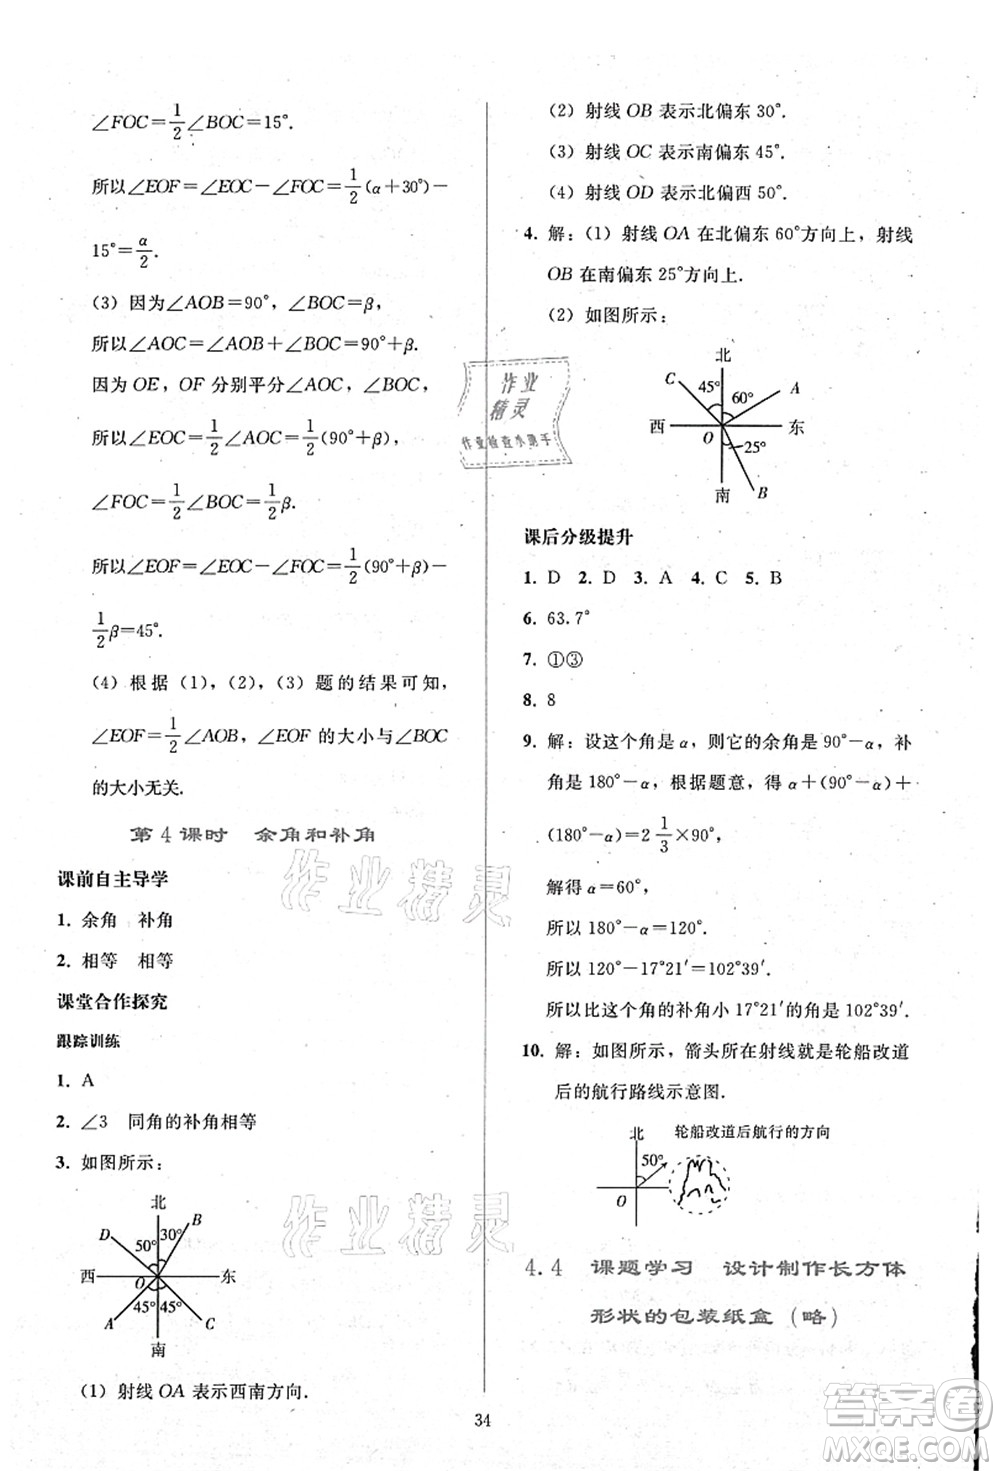 ∠FOC=1/2∠BOC=15°.
所以∠EOF=∠EOC-∠FOC=1/2(α+30°)-
15°=α/2.
(3) 因为∠AOB=90°，∠BOC=β，
所以∠AOC=∠AOB+∠BOC=90°+β.
因为 OE，OF 分别平分∠AOC，∠BOC，
所以∠EOC=1/2∠AOC=1/2(90°+β)，
∠FOC=1/2∠BOC=1/2β.
所以∠EOF=∠EOC-∠FOC=1/2(90°+β)-
1/2β=45°.
(4) 根据(1)，(2)，(3)题的结果可知，
∠EOF=1/2∠AOB，∠EOF 的大小与∠BOC
的大小无关.
第4课时　余角和补角
课前自主导学
1. 余角　补角
2. 相等　相等
课堂合作探究
跟踪训练
1. A
2. ∠3　同角的补角相等
3. 如图所示：
北
D
B
50°
30°
西
O
东
45°
45°
A
C
南
(1) 射线 OA 表示西南方向.
(2) 射线 OB 表示北偏东 30°.
(3) 射线 OC 表示南偏东 45°.
(4) 射线 OD 表示北偏西 50°.
4. 解：(1) 射线 OA 在北偏东 60°方向上，射线
OB 在南偏东 25°方向上.
(2) 如图所示：
北
C
45°
60°
A
西
O
东
25°
南
B
课后分级提升
1. D　2. D　3. A　4. C　5. B
6. 63.7°
7. ①③
8. 8
9. 解：设这个角是 α，则它的余角是 90°-α，补
角是 180°-α，根据题意，得 α+(90°-α)+
(180°-α)=2 1/3×90°，
解得 α=60°，
所以 180°-α=120°，
所以 120°-17°21′=102°39′，
所以比这个角的补角小 17°21′的角是 102°39′.
10. 解：如图所示，箭头所在射线就是轮船改道
后的航行路线示意图.
北
轮船改道后航行的方向
50°
O
4.4　课题学习　设计制作长方体
形状的包装纸盒（略）
34
作业
精灵
作业检查小助手
作业精灵
作业精灵
答案圈
MXQE.COM